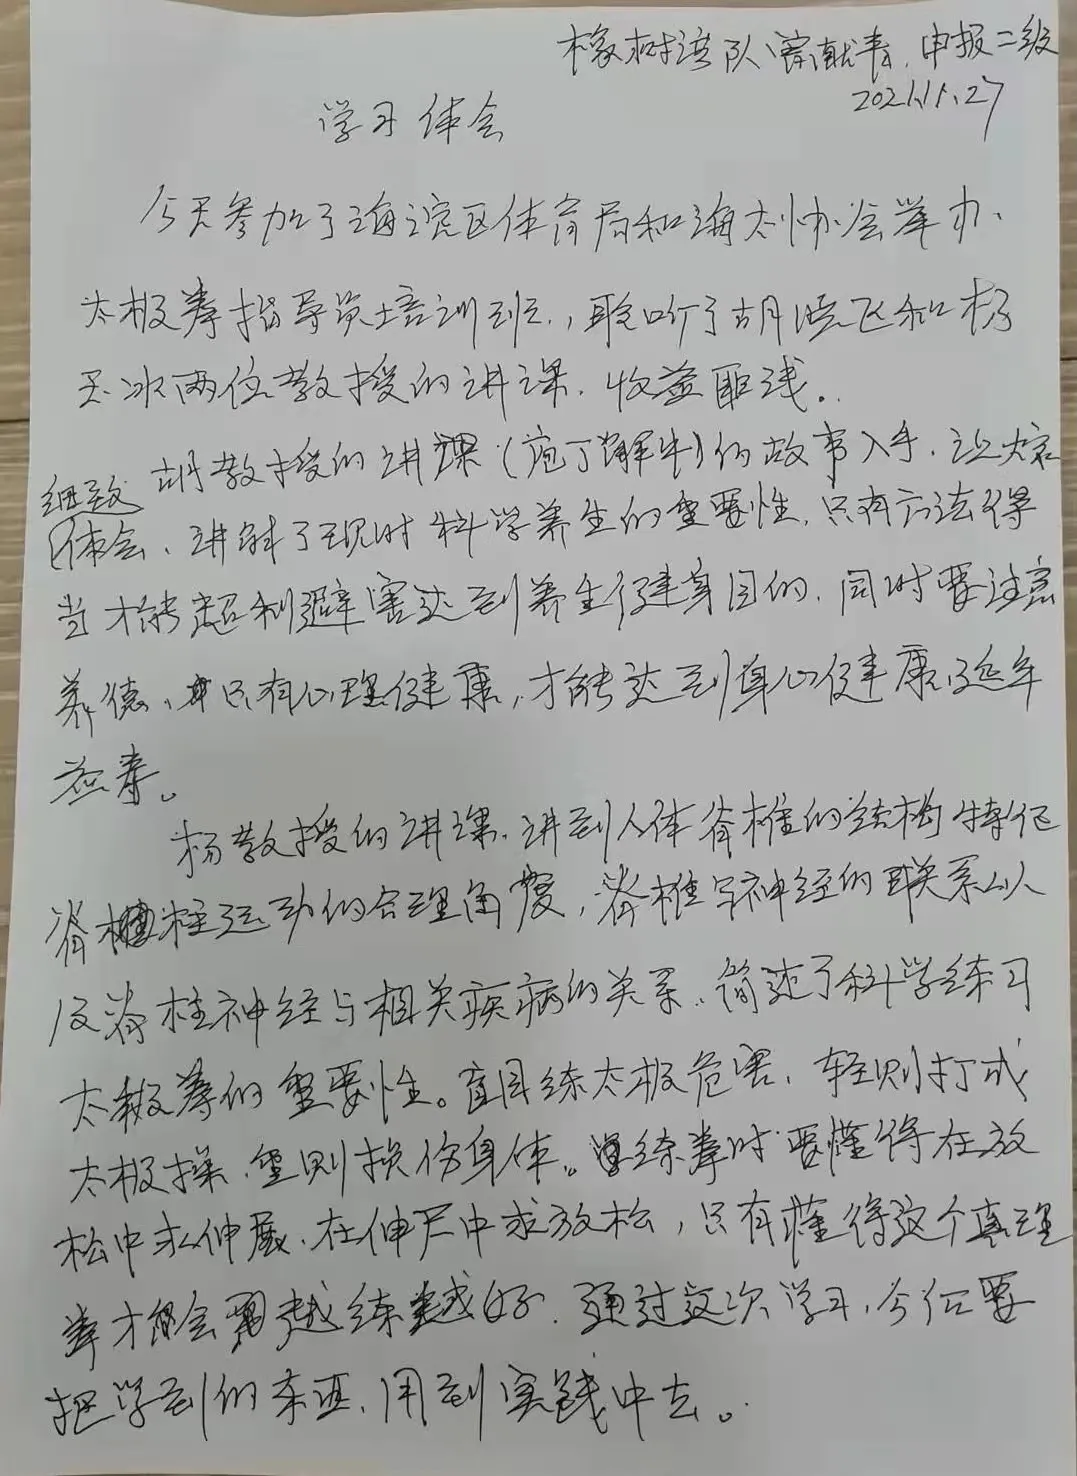 橡树湾队 献春 申报二级
2021.11.27
学习体会
今天参加了海淀区体育局和海太协会举办
太极拳指导员培训班,聆听了胡晓飞和杨
玉冰两位教授的讲课.收益匪浅.
胡教授的讲课(庖丁解牛)的故事入手.让大家
细致
体会、讲解了现时科学养生的重要性.只有方法得
当才能趋利避害达到养生健身目的.同时要注意
养德、只有心理健康,才能达到身心健康延年
益寿。
杨教授的讲课.讲到人体脊椎的结构特征
脊柱运动的合理角度,脊椎与神经的联系以
及脊柱神经与相关疾病的关系.简述了科学练习
太极拳的重要性。盲目练太极危害.轻则打成
太极操.重则损伤身体。练拳时要懂得在放
松中求伸展.在伸展中求放松,只有懂得这个真理
拳才会越练越好.通过这次学习,今后要
把学到的东西.用到实践中去。